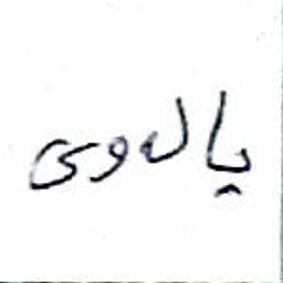 پالەوی